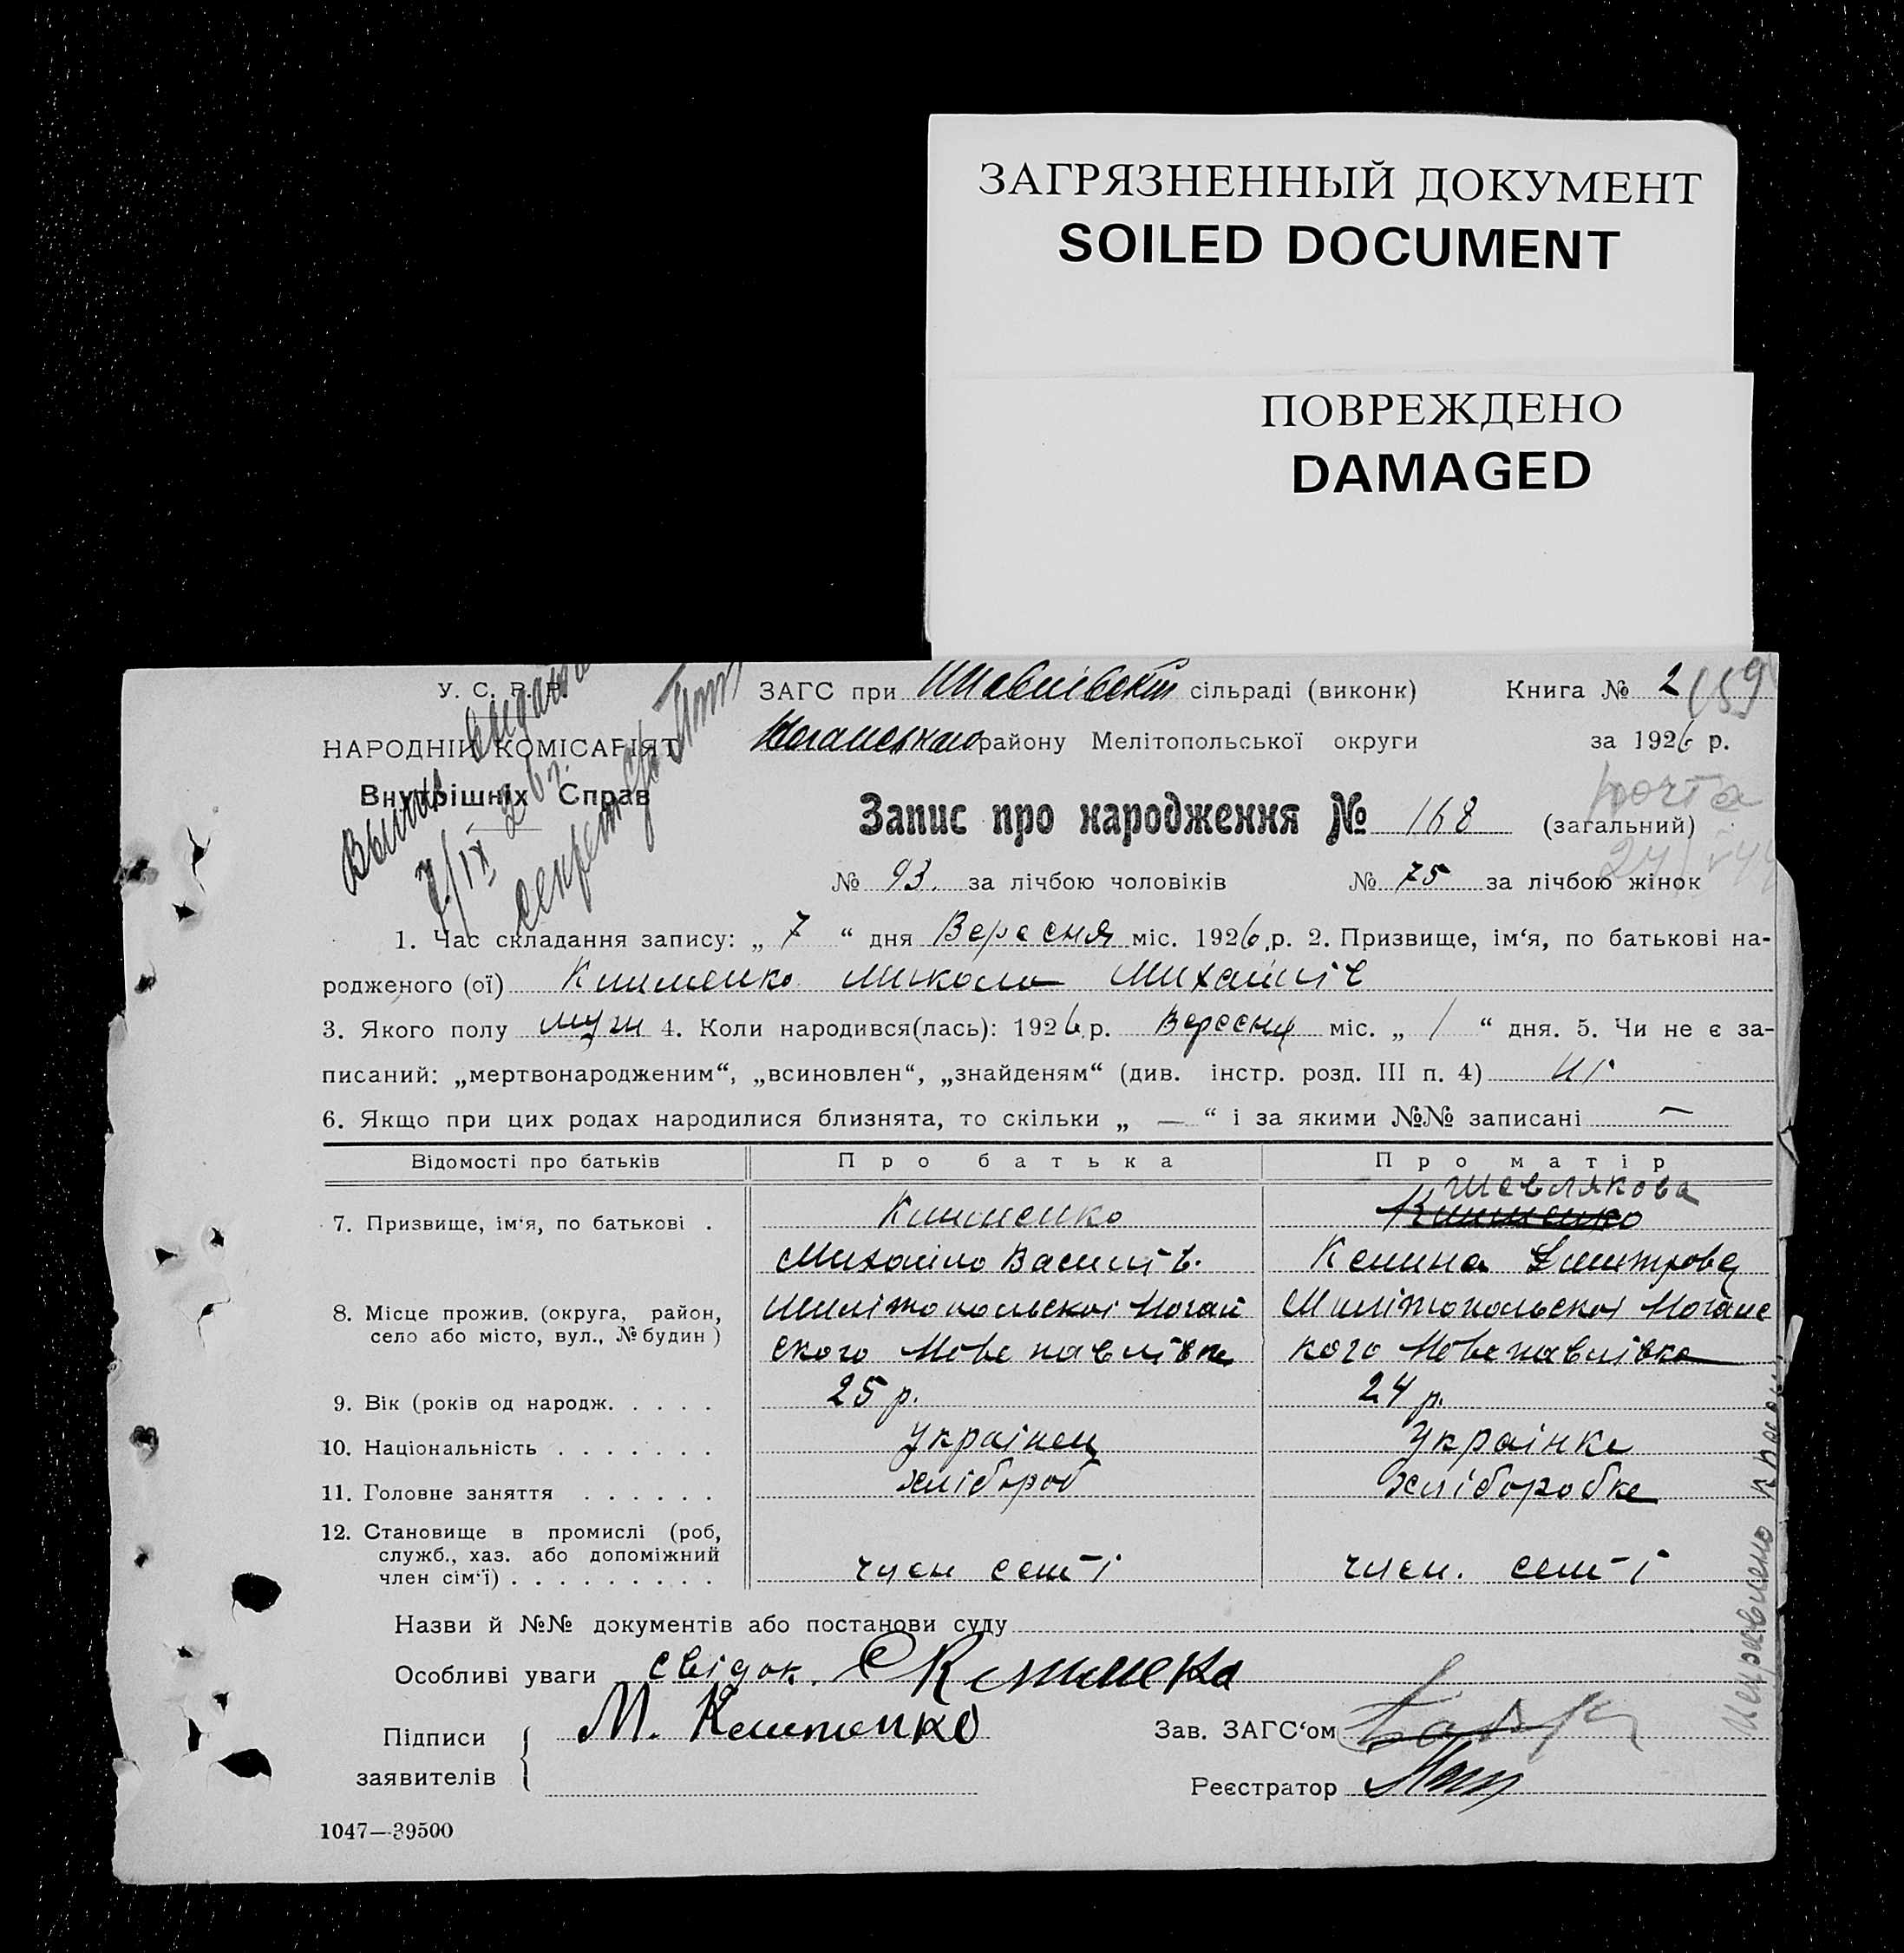 ЗАГРЯЗНЕННЫЙ ДОКУМЕНТ
SOILED DOCUMENT
ПОВРЕЖДЕНО
DAMAGED
У. С. Р. Р.
ЗАГС при сільраді (виконк)
Книга № 2
159
НАРОДНІЙ КОМІСАРІЯТ
району Мелітопольської округи
за 1926 р.
Внутрішніх Справ
почта
Запис про народження № 168 (загальний)
№ 93. за лічбою чоловіків № 75 за лічбою жінок
1. Час складання запису: „ 7 “ дня Вересня міс. 1926 р. 2. Призвище, ім‘я, по батькові на-
родженого (ої) Клименко Микола Михайлів
3. Якого полу муж 4. Коли народився(лась): 1926 р. Вересня міс. „ 1 “ дня. 5. Чи не є за-
писаний: „мертвонародженим“, „всиновлен“, „знайденям“ (див. інстр. розд. III п. 4) ні
6. Якщо при цих родах народилися близнята, то скільки „ — “ і за якими №№ записані —
Відомості про батьків
Про батька
Про матір
7. Призвище, ім‘я, по батькові .
Клименко
Шевлякова
Клименко
Михайло Василів.
Келина Дмитрова
8. Місце прожив. (округа, район,
село або місто, вул., № будин)
Милітопольскоі Ногай
ского Новепавлівка
Милітопольскоі Ногайс
кого Новепавлівка
9. Вік (років од народж. . . . .
25 р.
24 р.
10. Національність . . . . . . .
Українец
Українка
11. Головне заняття . . . . . .
хлібороб
хлібороbка
12. Становище в промислі (роб,
служб., хаз. або допоміжний
член сім‘ї) . . . . . . . . .
член семʼі
член. семʼі
Назви й №№ документів або постанови суду
Особливі уваги свідок.
Підписи
заявителів
М. Клименко
Зав. ЗАГС‘ом
Реєстратор
1047—39500